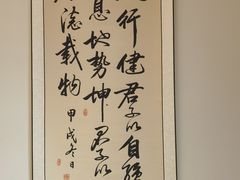 行健君子以自強
息地勢坤君子以
德載物
甲戌冬日